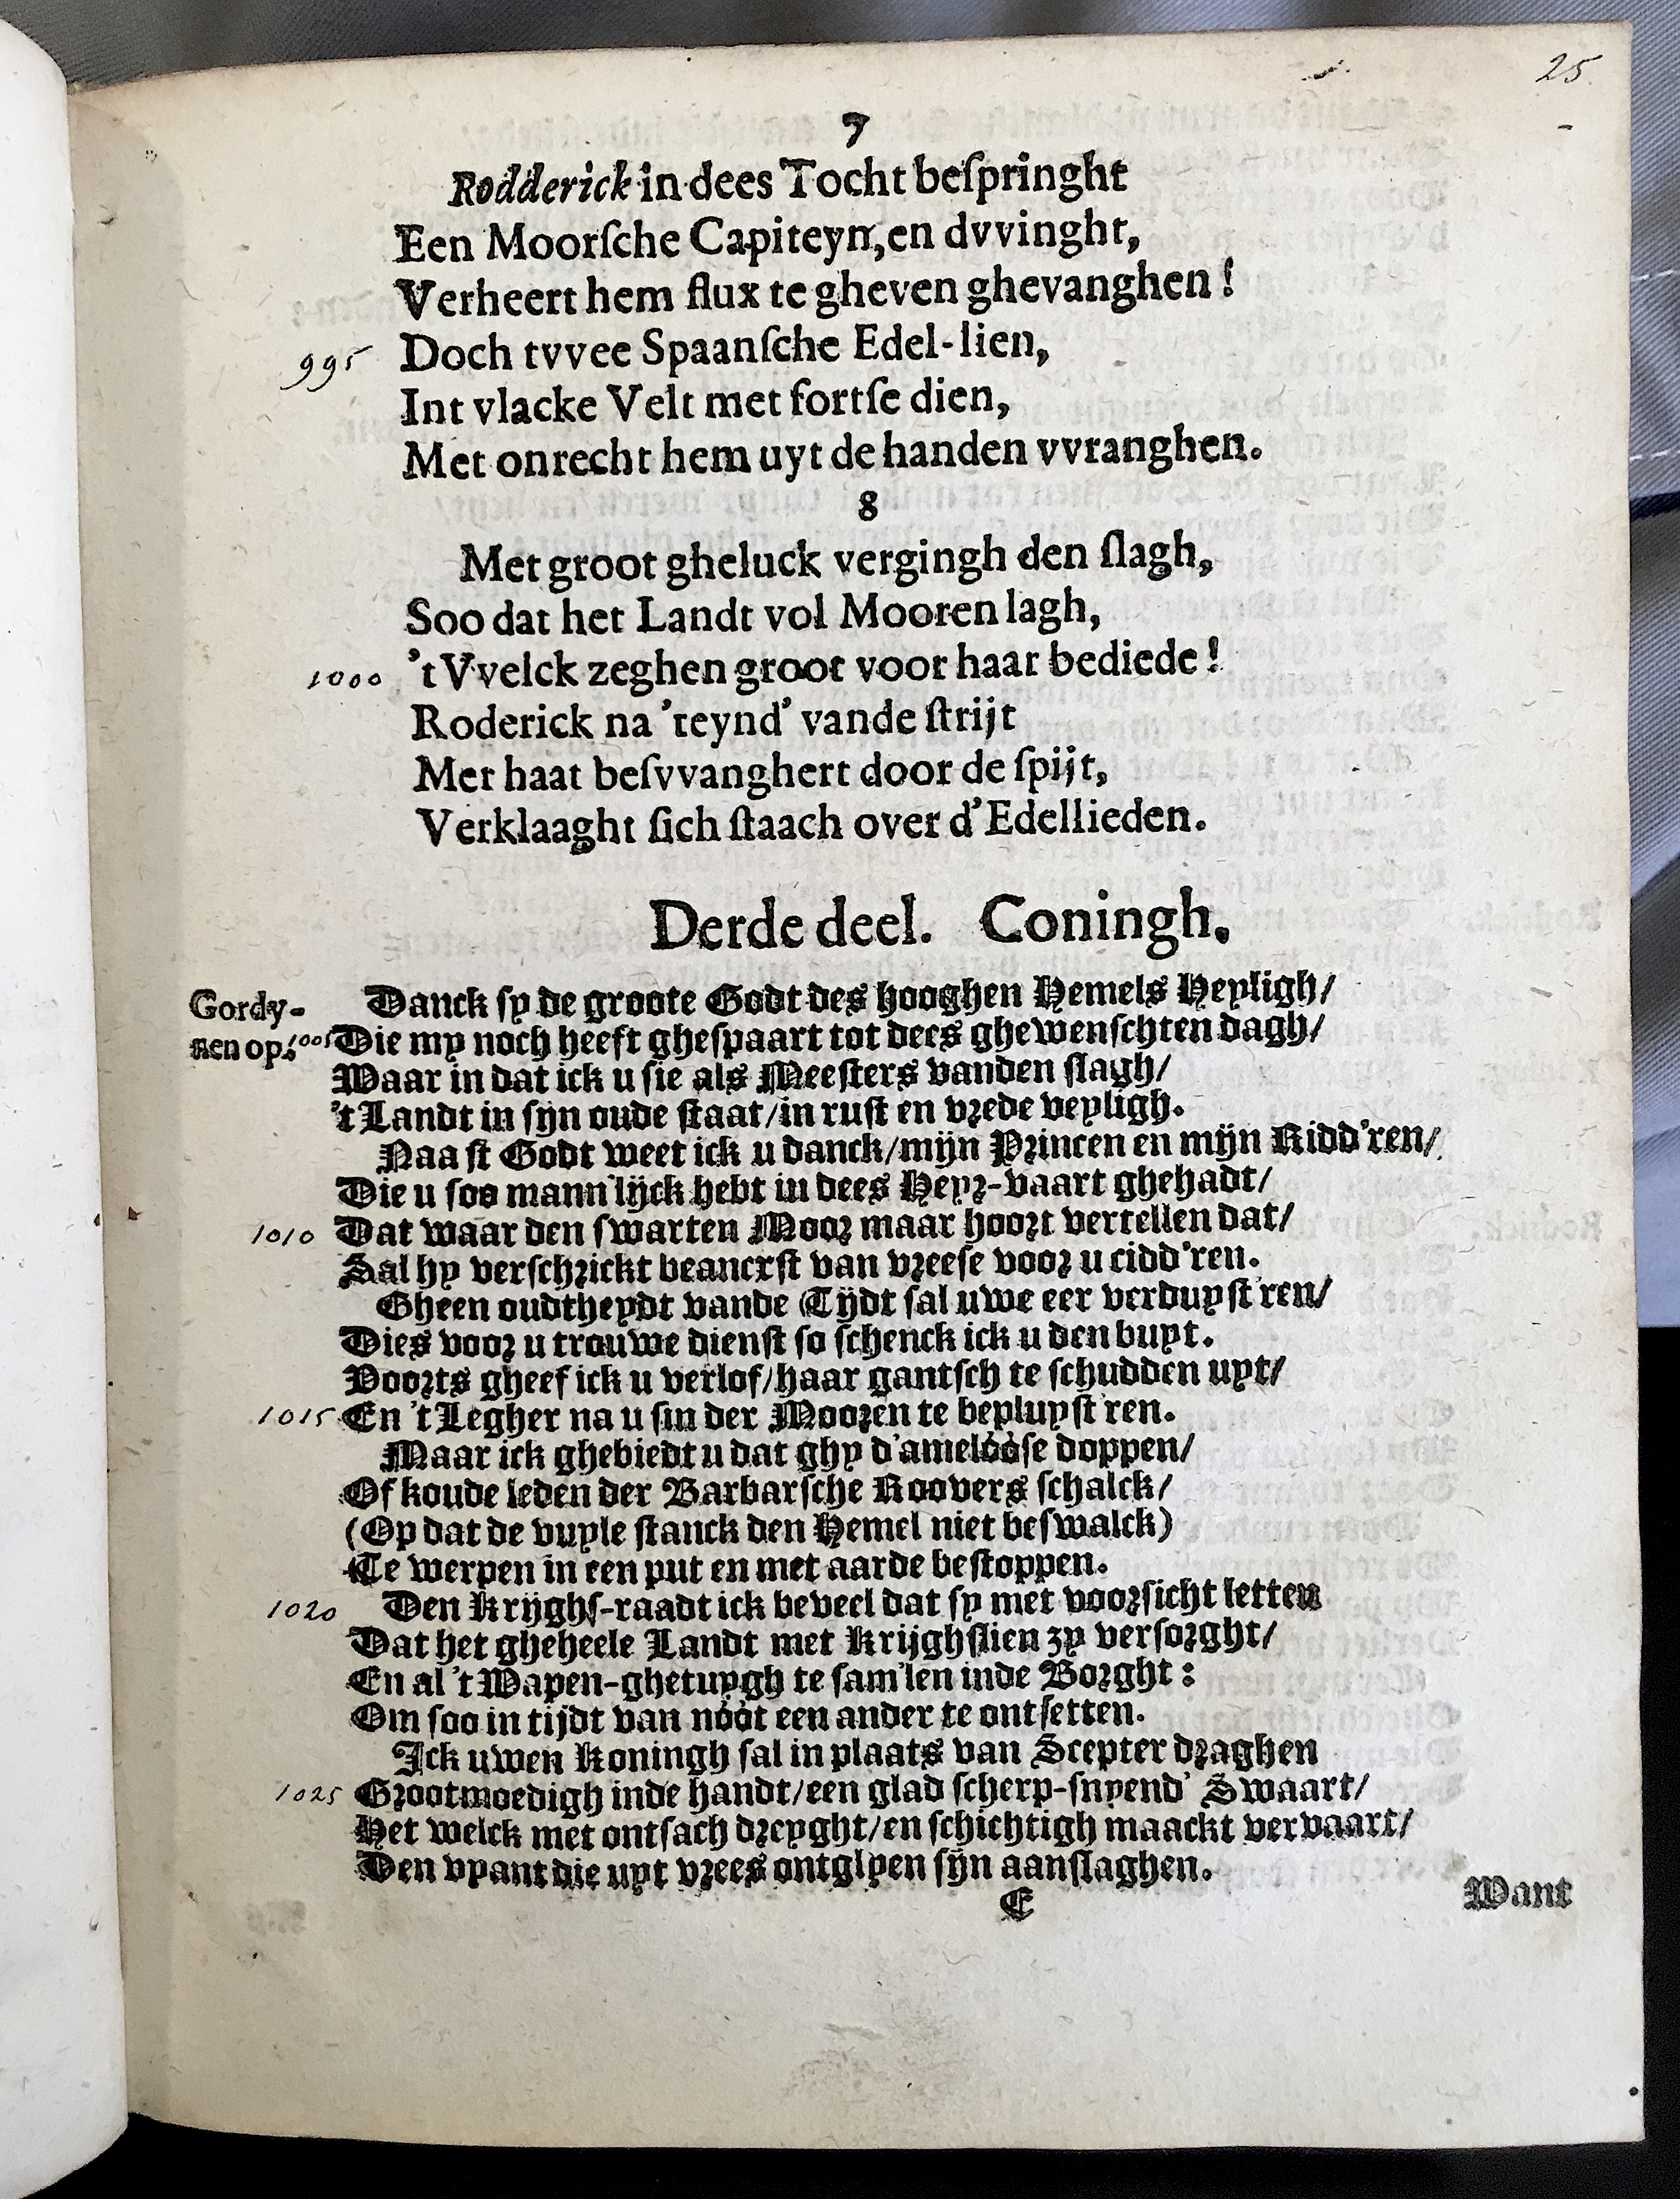 25
7
Rodderick in dees Tocht beſpringht
Een Moorſche Capiteyn, en dvvinght,
Verheert hem flux te gheven ghevanghen!
995 Doch tvvee Spaanſche Edel-lien,
Int vlacke Velt met fortſe dien,
Met onrecht hem uyt de handen vvranghen.
8
Met groot gheluck vergingh den ſlagh,
Soo dat het Landt vol Mooren lagh,
1000 't Vvelck zeghen groot voor haar bediede!
Roderick na 'teynd' vande ſtrijt
Met haat beſvvanghert door de ſpijt,
Verklaaght ſich ſtaach over d'Edellieden.
Derde deel. Coningh.
Gordy- Danck ſy de groote Godt des hooghen Hemels Heyligh/
nen op. 1005 Die my noch heeft gheſpaart tot dees ghewenſchten dagh/
Waar in dat ick u ſie als Meeſters vanden ſlagh/
't Landt in ſijn oude ſtaat/in ruſt en vrede veyligh.
Naaſt Godt weet ick u danck/mijn Princen en mijn Ridd'ren/
Die u ſoo mann'lijck hebt in dees Heyr-vaart ghehadt/
1010 Dat waar den ſwarten Moor maar hoort vertellen dat/
Sal hy verſchrickt beancxſt van vreeſe voor u cidd'ren.
Gheen oudtheydt vande Tijdt ſal uwe eer verduyſt'ren/
Dies voor u trouwe dienſt ſo ſchenck ick u den buyt.
Voorts gheef ick u verlof/haar gantſch te ſchudden uyt/
1015 En 't Legher na u ſin der Mooren te bepluyſt'ren.
Maar ick ghebiedt u dat ghy d'ameloóſe doppen/
Of koude leden der Barbarſche Roovers ſchalck/
(Op dat de vuyle ſtanck den Hemel niet beſwalck)
Te werpen in een put en met aarde beſtoppen.
1020 Den Krijghſ-raadt ick beveel dat ſy met voorſicht letten
Dat het gheheele Landt met Krijghſlien zy verſorght/
En al 't Wapen-ghetuygh te ſam'len inde Borght:
Om ſoo in tijdt van nóót een ander te ontſetten.
Ick uwen Koningh ſal in plaats van Scepter draghen
1025 Grootmoedigh inde handt/een glad ſcherp-ſnyend' Swaart/
Het welck met ontſach dreyght/en ſchichtigh maackt vervaart/
Den vyant die uyt vrees ontglyen ſijn aanſlaghen.
E Want